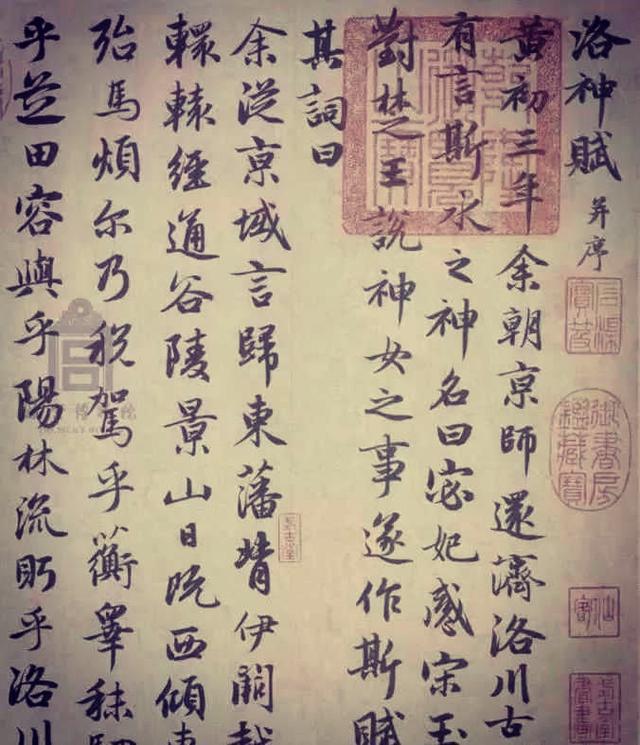 洛神賦并序
黃初三年余朝京師還濟洛川古
有言斯水之神名曰宓妃感宋玉
對楚王說神女之事遂作斯賦
其詞曰
余從京域言歸東藩背伊闕越
轘轅經通谷陵景山日既西傾車
殆馬煩尔乃稅駕乎蘅皋秣駟
乎芝田容與乎陽林流眄乎洛川
御書房鑑藏寶